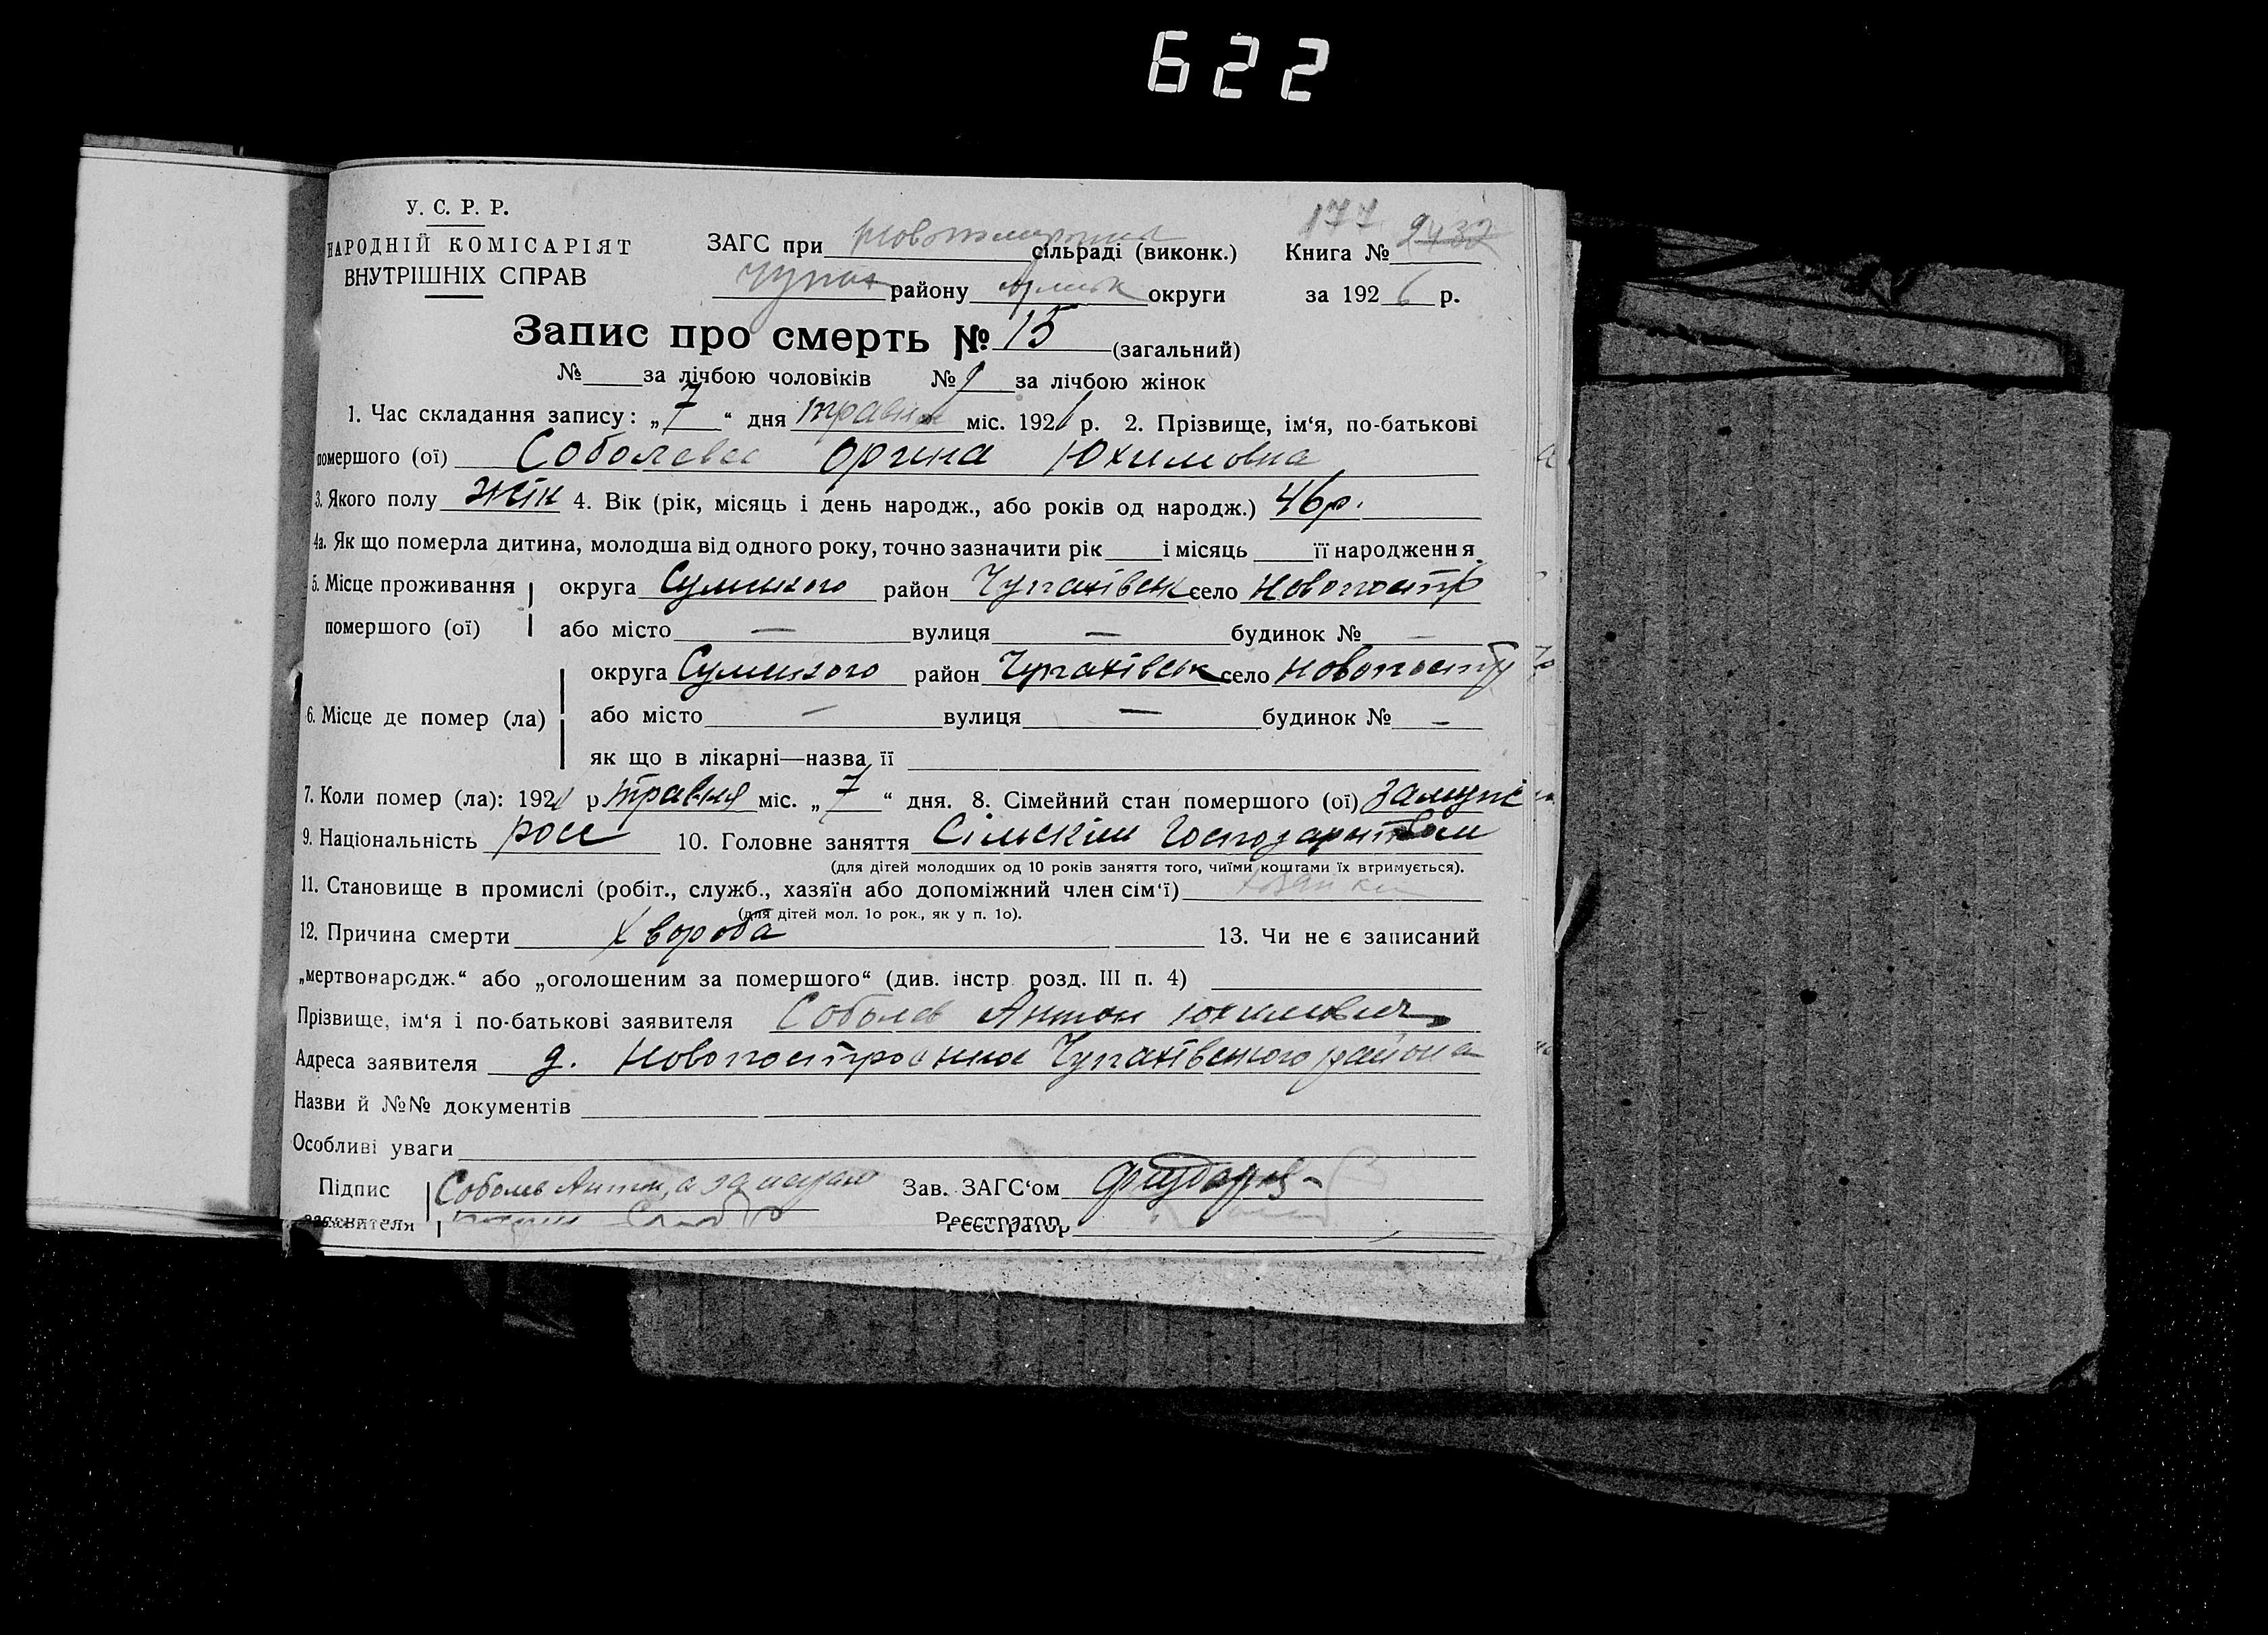 622
У. С. Р. Р.
НАРОДНІЙ КОМІСАРІЯТ
ВНУТРІШНІХ СПРАВ
177 2432
ЗАГС при сільраді (виконк.) Книга №
Чупах району округи за 1926 р.
Запис про смерть № 15 (загальний)
№ за лічбою чоловіків № 9 за лічбою жінок
1. Час складання запису: „7“ дня травня міс. 192 р. 2. Прізвище, ім‘я, по-батькові
помершого (ої) Соболева Орина Юхимовна
3. Якого полу жін 4. Вік (рік, місяць і день народж., або років од народж.) 46 р.
4а. Як що померла дитина, молодша від одного року, точно зазначити рік і місяць її народження
5. Місце проживання округа Сумського район Чупахівськ село Новопостр
помершого (ої) або місто — вулиця — будинок № —
округа Сумського район Чупахівськ село Новопостр
6. Місце де помер (ла) або місто — вулиця — будинок № —
як що в лікарні—назва її
7. Коли помер (ла): 192 р травня міс. „7“ дня. 8. Сімейний стан помершого (ої) замужн
9. Національність росс 10. Головне заняття Сільскім Господарством
(для дітей молодших од 10 років заняття того, чиїми коштами їх втримується).
11. Становище в промислі (робіт., служб., хазяїн або допоміжний член сім‘ї)
(для дітей мол. 1о рок., як у п. 1о).
12. Причина смерти Хвороба 13. Чи не є записаний
„мертвонародж.“ або „оголошеним за помершого“ (див. інстр. розд. III п. 4)
Прізвище, ім‘я і по-батькові заявителя Соболев Антон Юхимович
Адреса заявителя д. Новопостроенна Чупахівського района
Назви й №№ документів
Особливі уваги
Підпис Соболев Антон, а за Зав. ЗАГС‘ом
заявителя Реєстратор